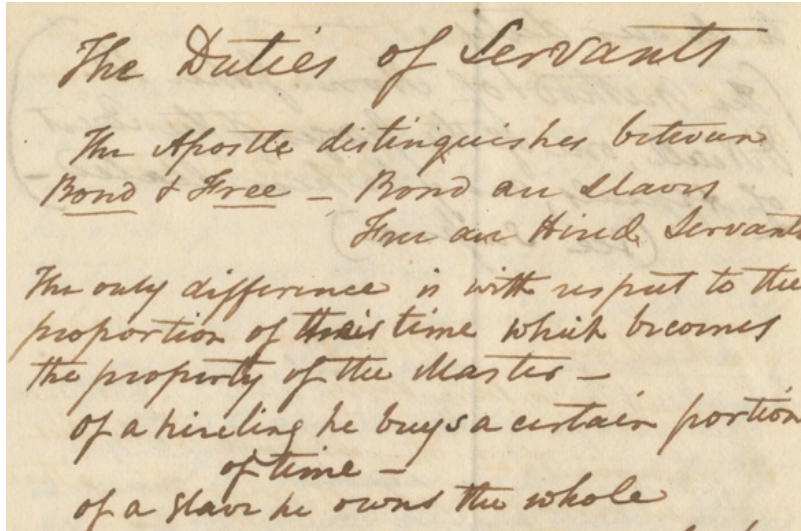 The Duties of Servants
The Apostle distinguishes between
Bond & Free – Bond are Slaves
Free are Hired Servants
The only difference is with respect to the
proportion of their time which becomes
the property of the Master –
of a hireling he buys a certain portion
of time –
of a slave he owns the whole